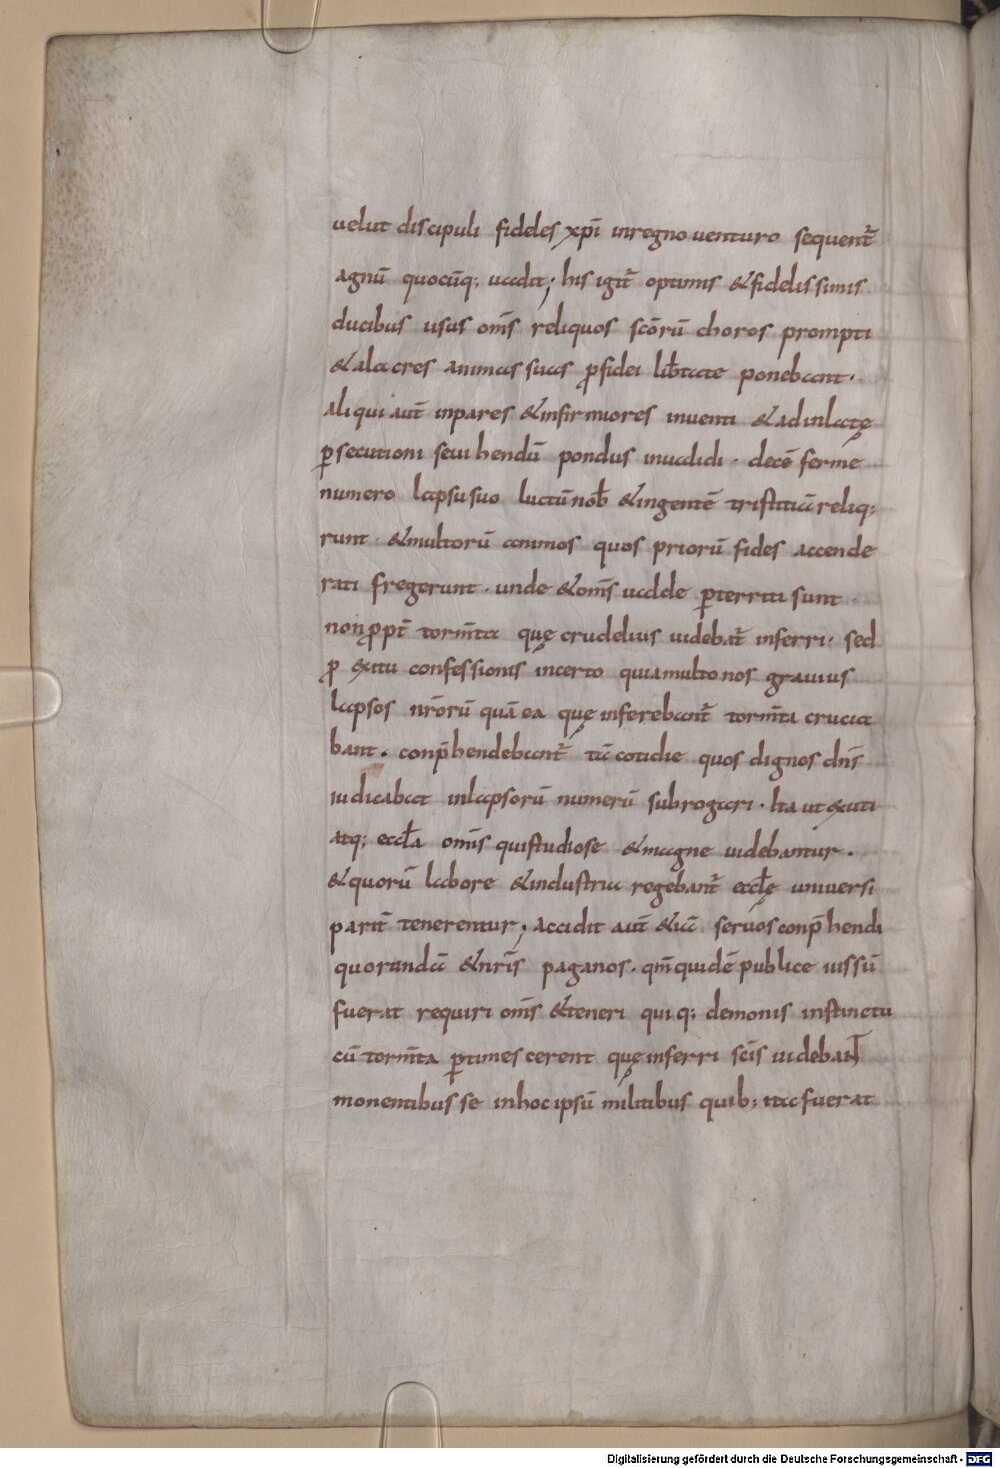 uelut discipuli fideles xp̄i inregno uenturo sequent̄
agnū quocūq; uadit; his igit̄ optimis &fidelissimis
ducibus usus om̄s reliquos sc̄orū choros prompti
&alacres animas suas ꝓfidei lib̄tate ponebant·
aliqui aut̄ inpares &infirmiores inuenti &adinlatę
ꝑsecutioni seui hendū pondus inualidi· decē ferme
numero lapsu suo luctū nob̄ &ingentē tristitiā reliq;
runt· &multorū animos quos priorū fides accende
rati fregerunt· unde &om̄s ualde ꝑterriti sunt
non ꝓpt̄ torm̄ta quę crudelius uidebat̄ inferri· sed
ꝓ exitu confessionis incerto quia multo nos grauius
lapsos nr̄orū quā ea quę inferebant̄ torm̄ta crucia
bant· conp̄hendebant̄ tā cotidie quos dignos dn̄s
iudicabat inlapsorū numerū subrogari· Ita ut exuti
atq; eccl̄a om̄is qui studiose &magne uidebantur·
&quorū labore &industria regebant̄ eccl̄ę uniuersi
parit̄ tenerentur; accidit aut̄ &iā seruos conp̄hendi
quorundā &nr̄is paganos· qm̄ quidē publice iussū
fuerat requiri om̄s &teneri qui q; demonis instinctu
cū torm̄ta ꝑtimescerent quę inferri sc̄is uidebant̄
monentibus se inhoc ipsū militibus quib; ita fuerat
Digitalisierung gefördert durch die Deutsche Forschungsgemeinschaft - DFG